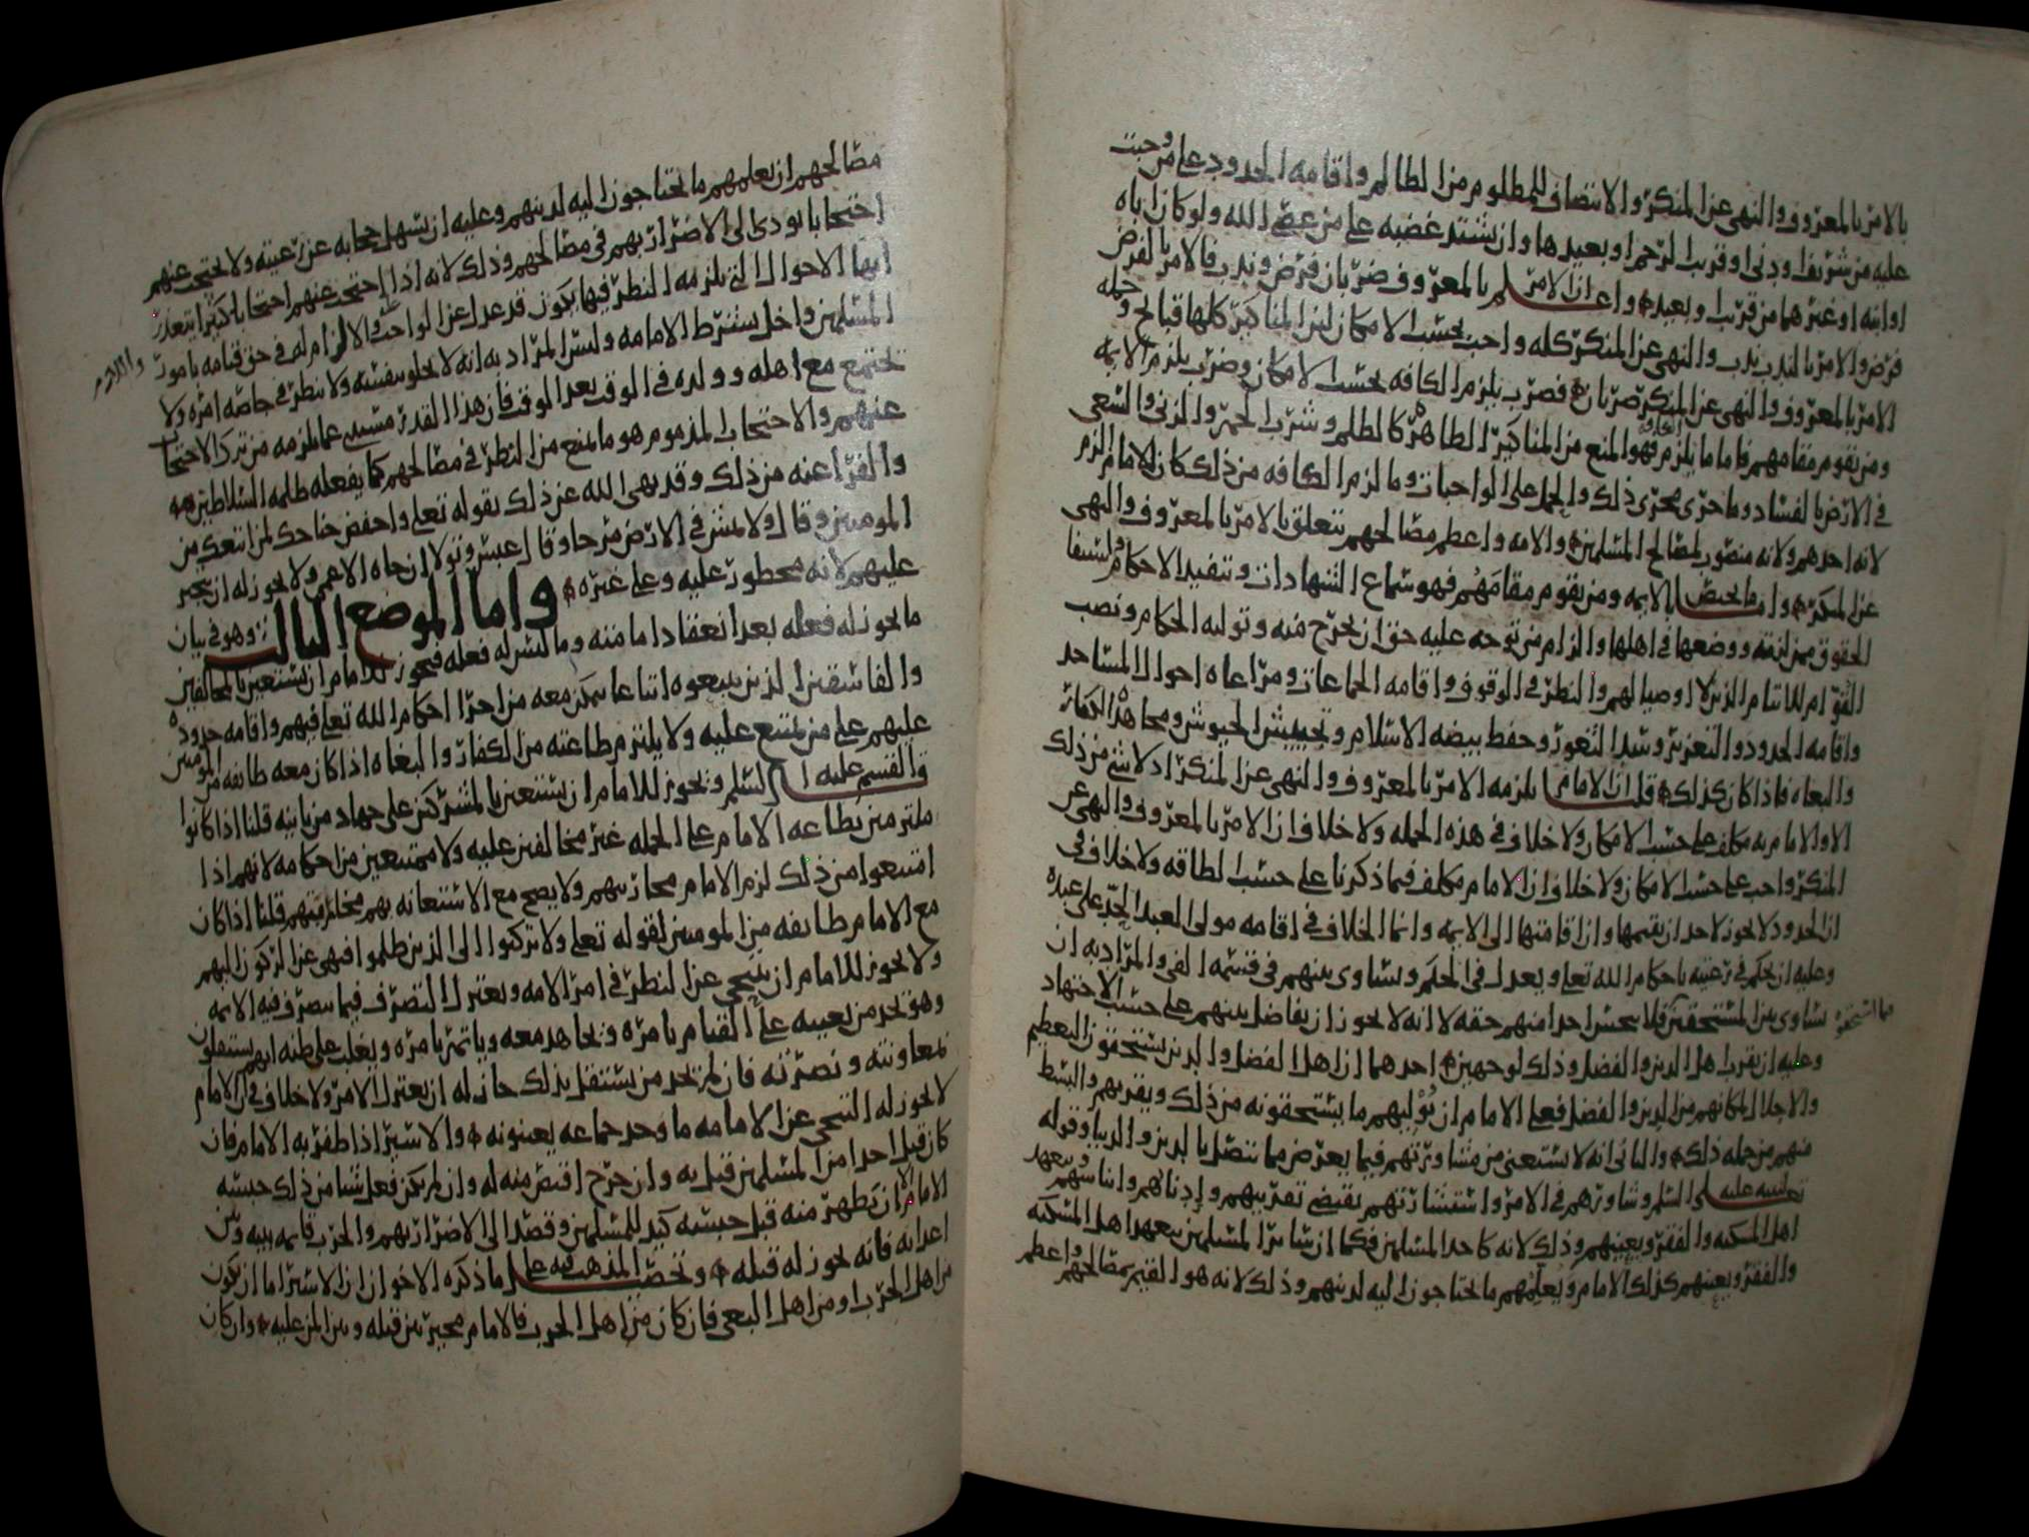 بالامر بالمعروف والنهى عن المنكر والانتصاف للمظلوم من الظالم واقامه الحدود على من وجبت
عليه من شريف ودنى وقريب الرحم او بعيدها وان يشتد غضبه على من عصى الله ولو كان اباه
او ابنه او غيرهما من قريب وبعيد واعلم ان الامر بالمعروف ضربان فرض وندب فالامر بالفرض
فرض والامر بالندب ندب والنهى عن المنكر كله واجب بحسب الامكان لان المناكير كلها قبائح وجمله
الامر بالمعروف والنهى عن المنكر ضربان فضرب يلزم الكافه بحسب الامكان وضرب يلزم الايمه
ومن يقوم مقامهم فاما ما يلزم الكافه فهو المنع من المناكير الظاهره كالظلم وشرب الخمر والزنى والسعى
فى الارض بالفساد وما جرى مجرى ذلك والحمل على الواجبات وما لزم الكافه من ذلك كان للامام الزم
لانه احدهم ولانه منصوب لمصالح المسلمين والامه واعظم مصالحهم تتعلق بالامر بالمعروف والنهى
عن المنكر واما ما يختص الايمه ومن يقوم مقامهم فهو سماع الشهادات وتنفيذ الاحكام واستيفا
الحقوق ممن لزمته ووضعها فى اهلها والزام من توجه عليه حق ان يخرج منه وتوليه الحكام ونصب
القوام للايتام الذين لا اوصيا لهم والنظر فى الوقوف واقامه الجماعات ومراعاه احوال المساجد
واقامه الحدود والتعزير وسد الثغور وحفظ بيضه الاسلام وتجييش الجيوش ومجاهده الكفار
والبغاه فاذا كان كذلك قلنا ان الامام يلزمه الامر بالمعروف والنهى عن المنكر اذ لا شى من ذلك
الا والامام به مكلف على حسب الامكان ولا خلاف فى هذه الجمله ولا خلاف ان الامر بالمعروف والنهى عن
المنكر واجب على حسب الامكان ولا خلاف ان الامام مكلف فيما ذكرنا على حسب الطاقه ولا خلاف فى
ان الحدود لا يجوز لاحد ان يقيمها وان اقامتها الى الايمه وانما الخلاف فى اقامه مولى العبد الحد على عبده
وعليه ان يحكم فى رعيته باحكام الله تعالى ويعدل فى الحكم ويساوى بينهم فى قسمه الفى والمراد به ان
يساوى بين المستحقين فلا يبخس احدا منهم حقه لا انه لا يجوز ان يفاضل بينهم على حسب الاجتهاد
وعليه ان يقرب اهل الدين والفضل وذلك لوجهين احدهما ان اهل الفضل والدين يستحقون التعظيم
والاجلال لمكانهم من الدين والفضل فعلى الامام ان يوليهم ما يستحقونه من ذلك وتقريبهم والبسط
منهم من جمله ذلك والثانى انه لا يستغنى من مشاورتهم فيما يعرض مما يتصل بالدين والدنيا وقوله
عليه السلم وشاورهم فى الامر واستشارتهم يقتضى تقريبهم وادناهم وايناسهم ويتعهد
اهل المسكنه والفقر ويعينهم وذلك لانه كاحد المسلمين فكما ان سائر المسلمين يتعهد اهل المسكنه
والفقر ويعينهم كذلك الامام ويعلمهم ما يحتاجون اليه لدينهم وذلك لانه هو القيم بمصالحهم واعظم
مصالحهم ان يعلمهم ما يحتاجون اليه لدينهم وعليه ان يسهل حجابه عن رعيته ولا يحتجب عنهم
احتجابا يودى الى الاضرار بهم فى مصالحهم وذلك لانه اذا احتجب عنهم احتجابا كثيرا يتعذر
ايها الاحوال التى تلزمه النظر فيها يكون قد عدل عن الواجب والالزام له فى حق قيامه بامور
المسلمين واخل بشرط الامامه وليس المراد به انه لا يخلو بنفسه ولا ينظر فى خاصه امره ولا
يجتمع مع اهله وولده فى الوقت بعد الوقت فان هذا القدر مستثنى عما يلزمه من ترك الاحتجاب
عنهم والاحتجاب المذموم هو ما يمنع من النظر فى مصالحهم كما يفعله ظلمه السلاطين
والفراعنه من ذلك وقد نهى الله عن ذلك بقوله تعلى واخفض جناحك لمن اتبعك من
المومنين وقال ولا تمش فى الارض مرحا وقال عبس وتولى ان جاه الاعمى ولا يجوز له ان يتجبر
عليهم لانه محظور عليه وعلى غيره واما الموضع الثالث وهو فى بيان
ما يجوز له فعله بعد انعقاد امامته وما ليس له فعله فيجوز للامام ان يستعين بالمخالفين
والفاسقين الذين يتبعوه اتباعا يتمكن معه من اجرا احكام الله تعلى فيهم واقامه حدوده
عليهم على من يمتنع عليه ولا يلتزم طاعته من الكفار والبغاه اذا كان معه طائفه من المومنين
قال القسم عليه السلم ويجوز للامام ان يستعين بالمشركين على جهاد من باينه قلنا اذا كانوا
ملتزمين بطاعه الامام على الجمله غير مخالفين عليه ولا ممتنعين من احكامه لانهم اذا
امتنعوا من ذلك لزم الامام محاربتهم ولا يصح مع الاستعانه بهم محاربتهم قلنا اذا كان
مع الامام طائفه من المومنين لقوله تعلى ولا تركنوا الى الذين ظلموا فنهى عن الركون اليهم
ولا يجوز للامام ان يتنحى عن النظر فى امر الامه ويعتزل التصرف فيما يتصرف فيه الايمه
وهو يجد من يعينه على القيام بامره ويجاهد معه وياتمر بامره ويغلب على ظنه انهم يستقلون
بمعاونته ونصرته فان لم يجد من يستقل بذلك جاز له ان يعتزل الامر ولا خلاف فى ان الامام
لا يجوز له التنحى عن الامامه ما وجد جماعه يعينونه والاسير اذا ظفر به الامام فان
كان قتل احدا من المسلمين قتل به وان جرح اقتص منه له وان لم يكن فعل شيا من ذلك حبسه
الامام الا ان يظهر منه قبل حبسه كيد للمسلمين وقصد الى الاضرار بهم والحرب قايمه بينه وبين
اعدائه فانه يجوز له قتله وتحصيل المذهب فيه على ما ذكره الاخوان ان الاسير اما ان يكون
من اهل الحرب او من اهل البغى فان كان من اهل الحرب فالامام مخير بين قتله وبين المن عليه وان كان